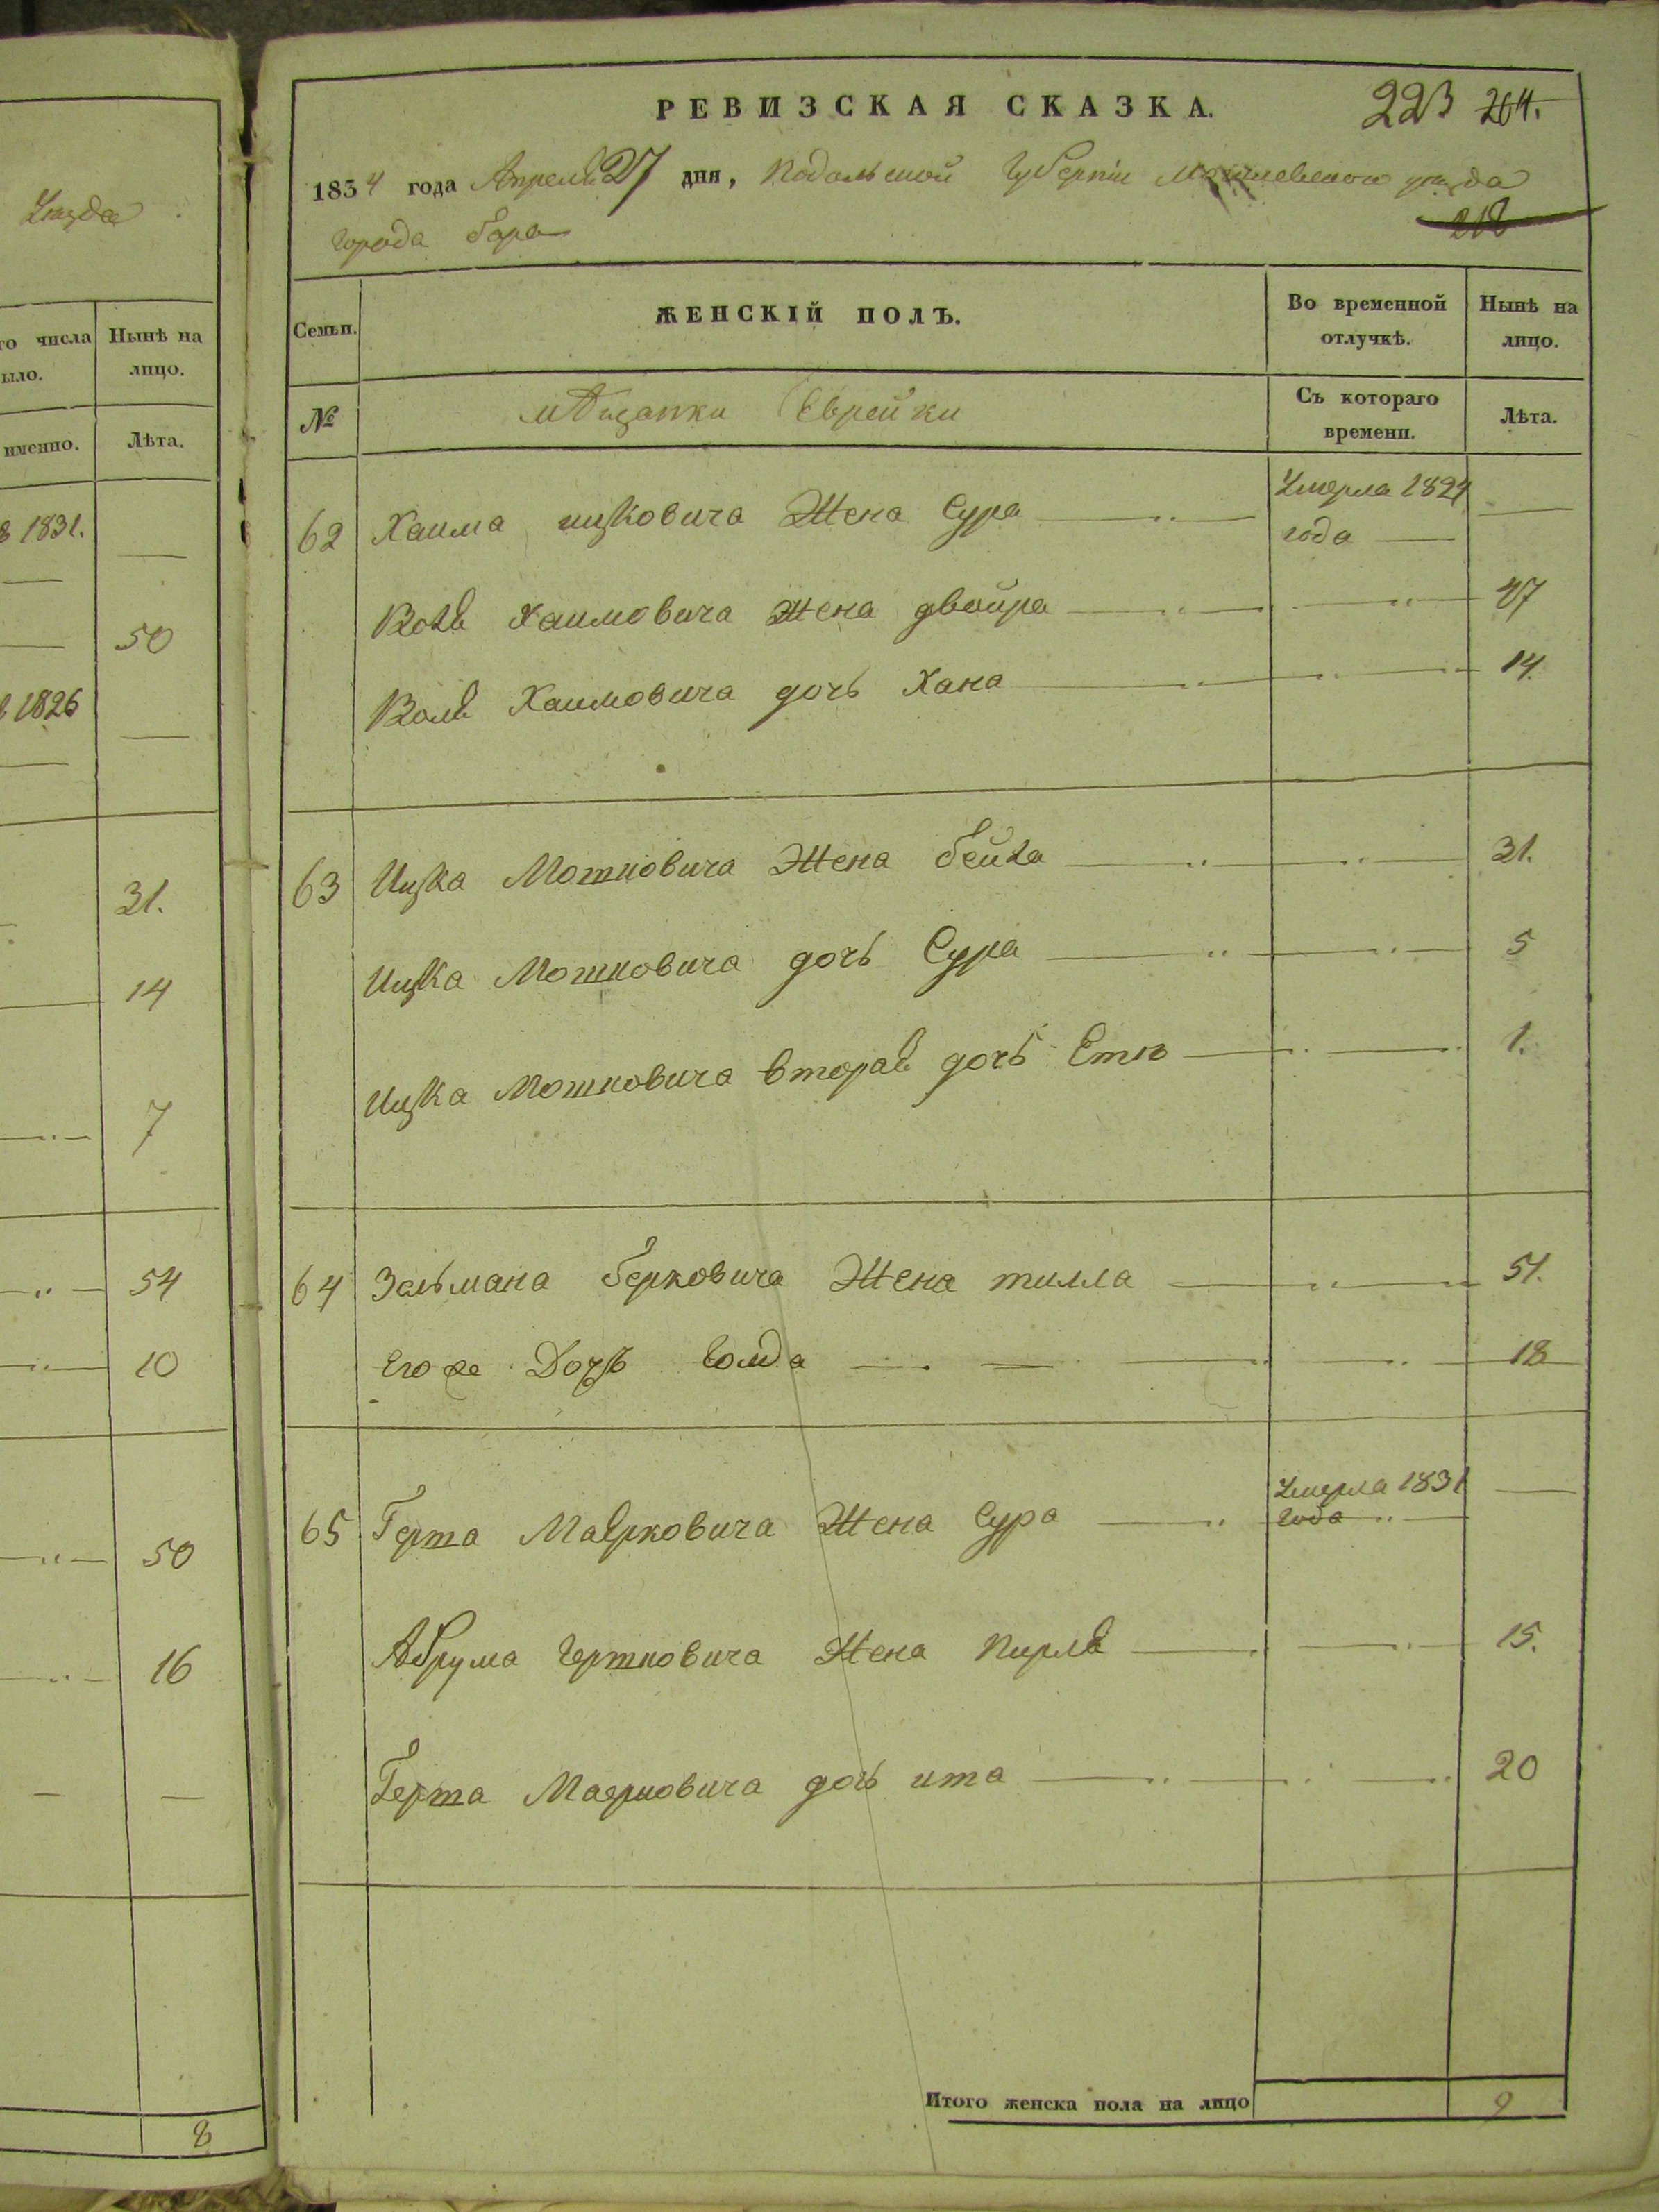 Уезда
го числа Нынѣ на
ыло. лицо.
именно. Лѣта.
в 1831. —
50
1826 —
31.
14
7
54
10
50
16
8
РЕВИЗСКАЯ СКАЗКА. 223 264.
1834 года Апреля 27 дня, Подольской Губернiи Могилевского уезда
218
города бара
Семьи. ЖЕНСКІЙ ПОЛЪ. Во временной отлучкѣ. Нынѣ на лицо.
№ мѣщанки Еврейки Съ котораго времени. Лѣта.
62 Хаима ицковича Жена Сура — Умерла 1824 года —
Воля Хаимовича Жена двойра — 47
Воля Хаимовича дочь Хана — 14.
63 Ицка Мошковича Жена бейла — 31.
Ицка Мошковича дочь Сура — 5
Ицка Мошковича вторая дочь Етя — 1.
64 Зельмана берковича Жена тилла — 51.
Его же Дочь Голда — 18
65 Герша Маерковича Жена Сура — Умерла 1831 года —
Абрума Гершковича Жена Пирля — 15.
Герша Маерковича дочь ита — 20
Итого женска пола на лицо 9